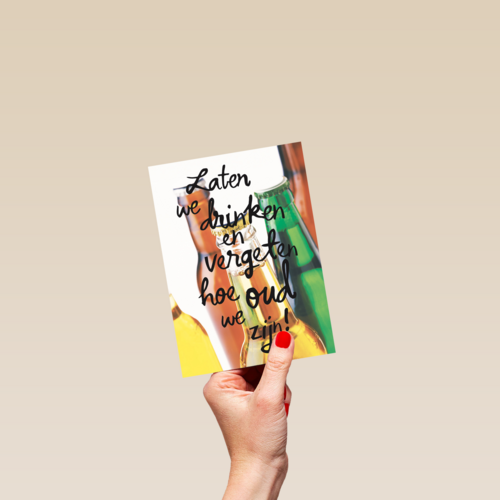 Laten
we drinken
en
vergeten
hoe oud
we zijn!